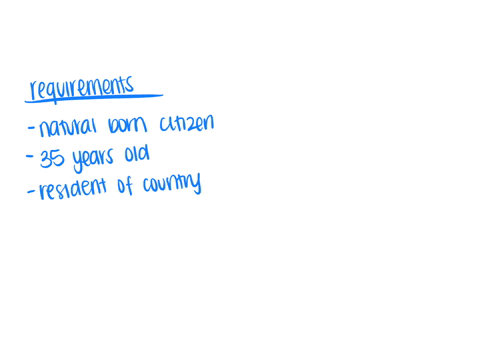 requirements
- natural born citizen
- 35 years old
- resident of country